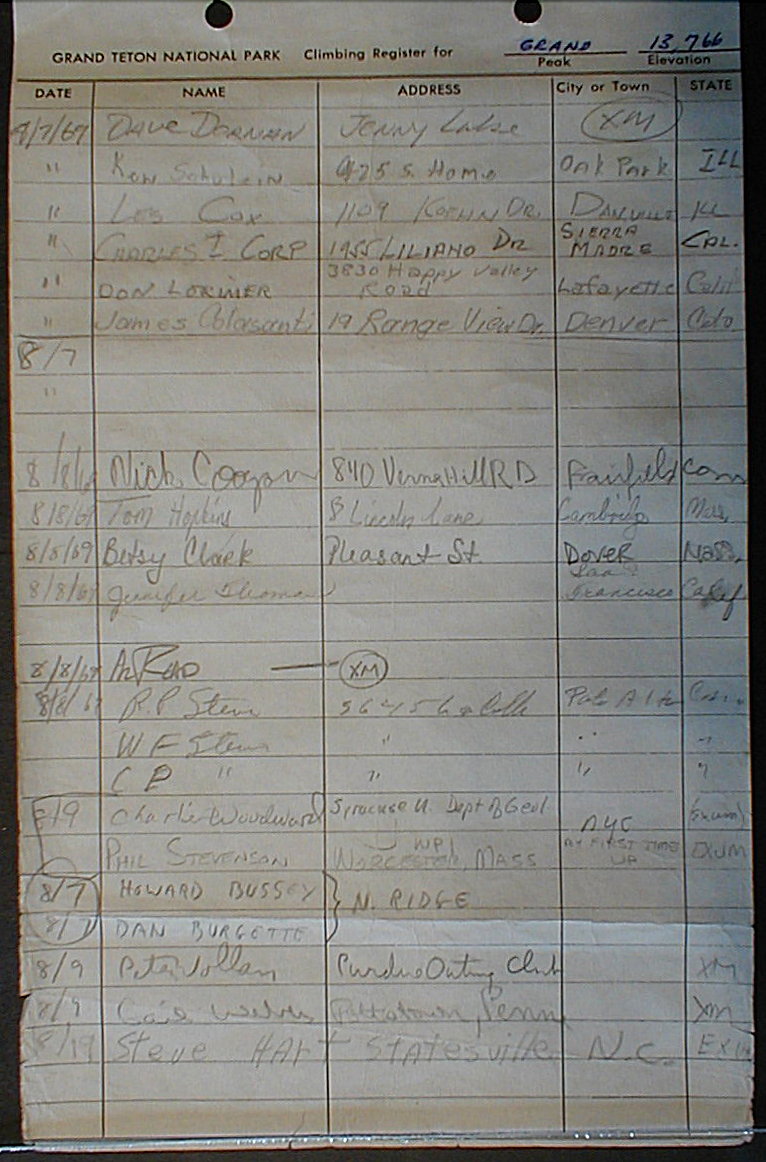 GRAND 13,766
GRAND TETON NATIONAL PARK Climbing Register for Peak Elevation
DATE NAME ADDRESS City or Town STATE
8/7/69 DAVE DORNAN Jenny Lake XM
" Ken 925 S. Home Oak Park ILL
" Les Cox 1109 Koehn DR. DANVILLE ILL
" CHARLES I CORP 1955 LILIANO DR SIERRA MADRE CAL.
" DON LORIMER 3830 Happy Valley Road Lafayette Calif
" James Colasanti 19 Range View Dr. Denver Colo
8/7
"
8/8/69 Nick 840 Verna Hill RD Fairfield Conn
8/8/69 Tom Hopkins 8 Lincoln Lane Cambridge Mass
8/8/69 Betsy Clark Pleasant St. DOVER Mass.
8/8/69 Jennifer Thomas San Francisco Calif
8/8/69 AL READ XM
8/8/69 R.P. Stern Palo Alto
W F Stern " " "
C P " " " "
8/9 Charlie Woodward Syracuse U. Dept of Geol NYC (Exum)
PHIL STEVENSON WPI WORCESTER, MASS MY FIRST TIME UP EXUM
8/7 HOWARD BUSSEY N. RIDGE
8/7 DAN BURGETTE
8/9 Pete Purdue Outing Club XM
8/9 Penn XM
8/19 Steve HART STATESville N.C. EXUM